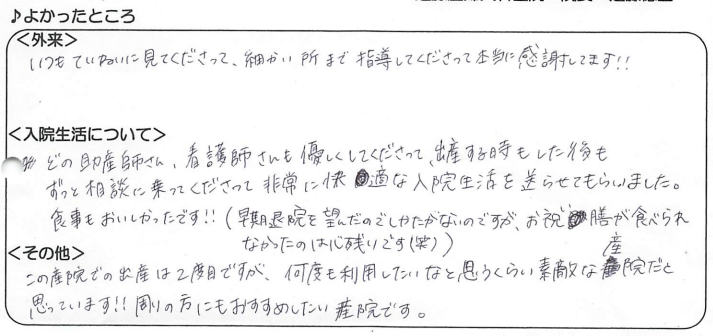 ♪よかったところ
<外来>
いつもていねいに見てくださって、細かい所まで指導してくださって本当に感謝してます!!
<入院生活について>
どの助産師さん、看護師さんも優しくしてくださって、出産する時もした後も
ずっと相談に乗ってくださって非常に快適な入院生活を送らせてもらいました。
食事もおいしかったです!!(早期退院を望んだのでしかたがないのですが、お祝膳が食べられ
なかったのは心残りです(笑))
<その他>
この産院での出産は2度目ですが、何度も利用したいなと思うくらい素敵な産院だと
思っています!!周りの方にもおすすめしたい産院です。